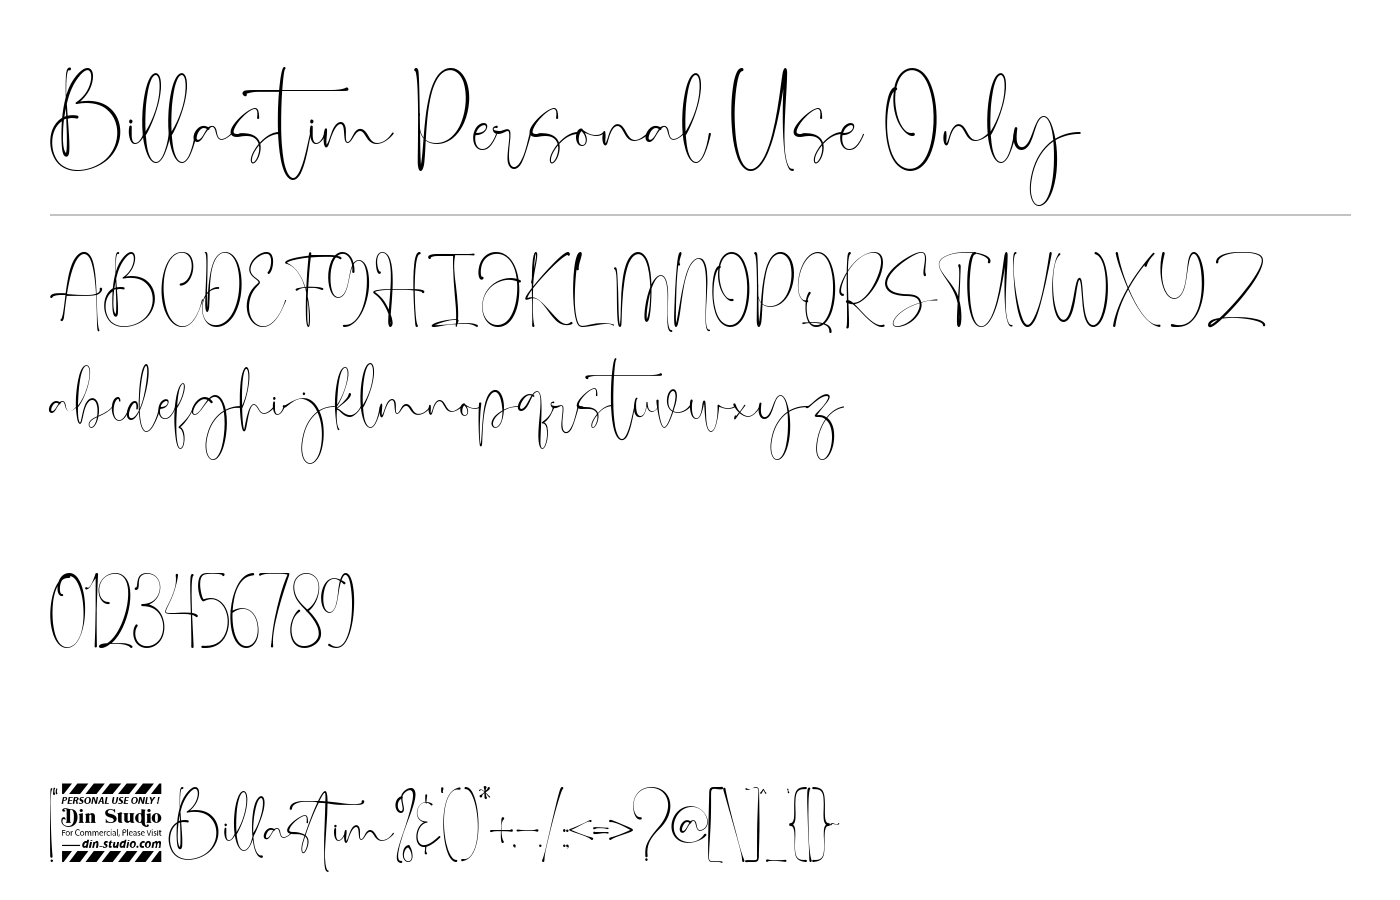 Billastim Personal Use Only
ABCDEFGHIJKLMNOPQRSTUVWXYZ
abcdefghijklmnopqrstuvwxyz
0123456789
!"
PERSONAL USE ONLY !
Din Studio
For Commercial, Please Visit
din-studio.com
Billastim%&'()*+,-./:;<=>?@[\]^_`{|}~